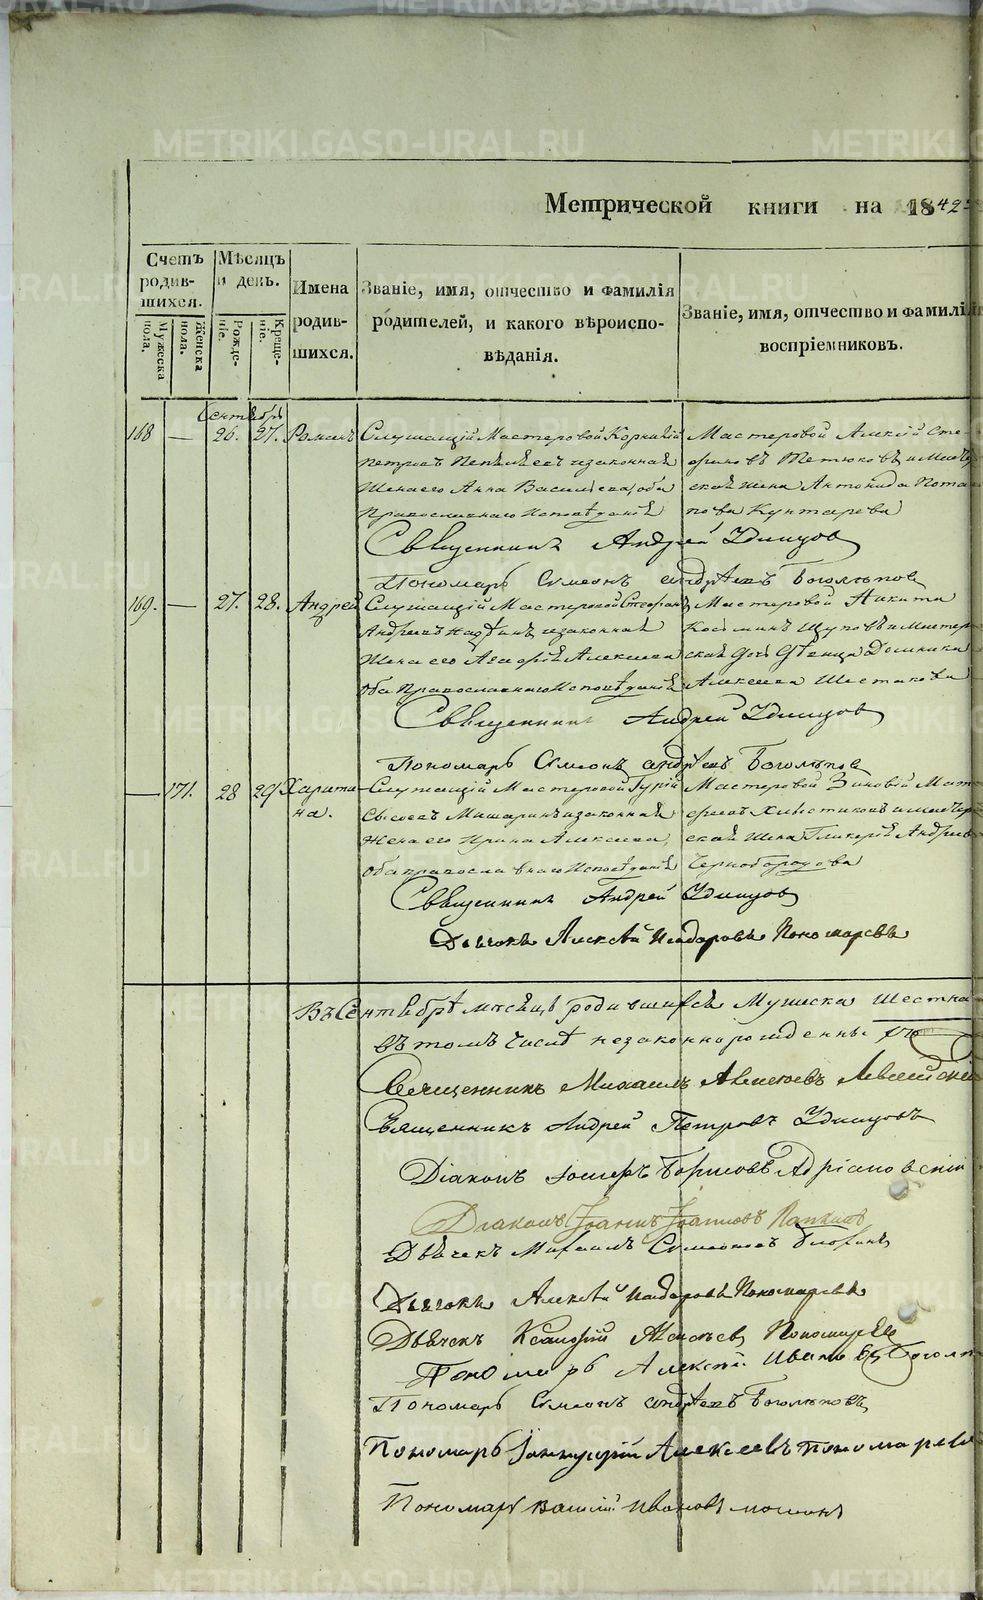 METRIKI.GASO-URAL.RU
Метрической книги на 1842
Счетъ родив-шихся.
Мужеска пола.
Женска пола.
Мѣсяцъ и день.
Рожде-ніе.
Креще-ніе.
Имена родив-шихся.
Званіе, имя, отчество и фамилія родителей, и какого вѣроиспо-вѣданія.
Званіе, имя, отчество и фамилія воспріемниковъ.
Сентябрь
168 — 26. 27. Романъ
Служащій Мастеровой Корнилій
Петровъ и законная
Жена его Анна Васильева, оба
Православнаго Исповѣданія
Мастеровой Алексій Сте-
фановъ и Мастер
ская жена Антонида Пота
пова
Священникъ Андрей Удинцов
Пономарь Симеонъ Андреевъ Боголѣпов
169. — 27. 28. Андрей
Служащій Мастеровой Стефанъ
Андреевъ и законная
Жена его Агафія Алексеева
Оба Православнаго Исповѣданія
Мастеровой Никита
Косьминъ Щуповъ и Мастер
ская дочь Дѣвица Домника
Алексеева Шестакова
Священникъ Андрей Удинцов
Пономарь Симеонъ Андреевъ Боголѣпов
— 171. 28 29 Харити
на.
Служащій Мастеровой Гурій
Сысоевъ Машаринъ и законная
Жена его Ирина Алексеева,
Оба православнаго Исповѣданія
Мастеровой Зиновій Мат
феевъ Хвостиковъ и мастер
ская Жена Гликерія Андреева
Чернобородова
Священникъ Андрей Удинцов
Дьячокъ Алексѣй Исидоровъ Пономаревъ
Въ Сентябрѣ мѣсяцѣ родившихся Мужеска
въ томъ числѣ незаконнорожденны
Священникъ Михаилъ Алексѣевъ
Священникъ Андрей Петровъ Удинцовъ
Діаконъ Іосифъ Борисовъ Адріановскій
Діаконъ Іоаннъ Іоанновъ Попковъ
Дьячекъ Михаилъ Симеоновъ
Дьячокъ Алексѣй Исидоровъ Пономаревъ
Дьячекъ Алексѣев Пономарев
Пономарь Алексій Иванов Боголѣп
Пономарь Симеонъ Андреевъ Боголѣповъ
Пономарь Алексеевъ Пономарев
Пономарь Василій Ивановъ